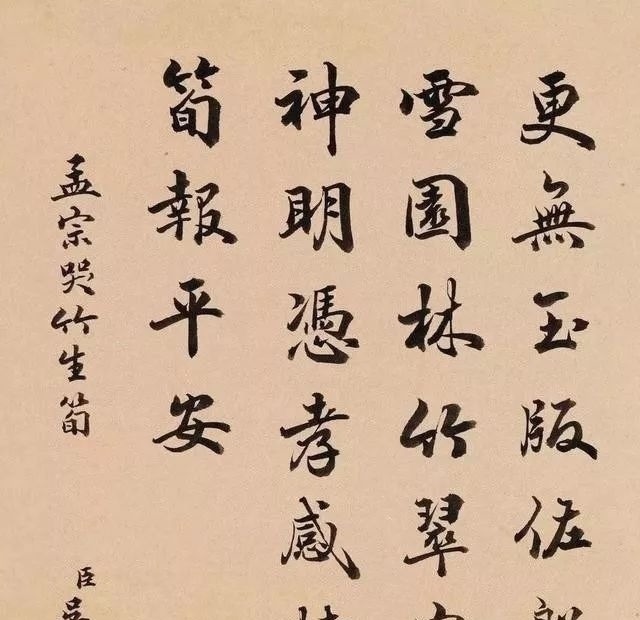 更無玉版佐
雪園林竹翠
神明憑孝感
筍報平安
孟宗哭竹生筍
臣吳